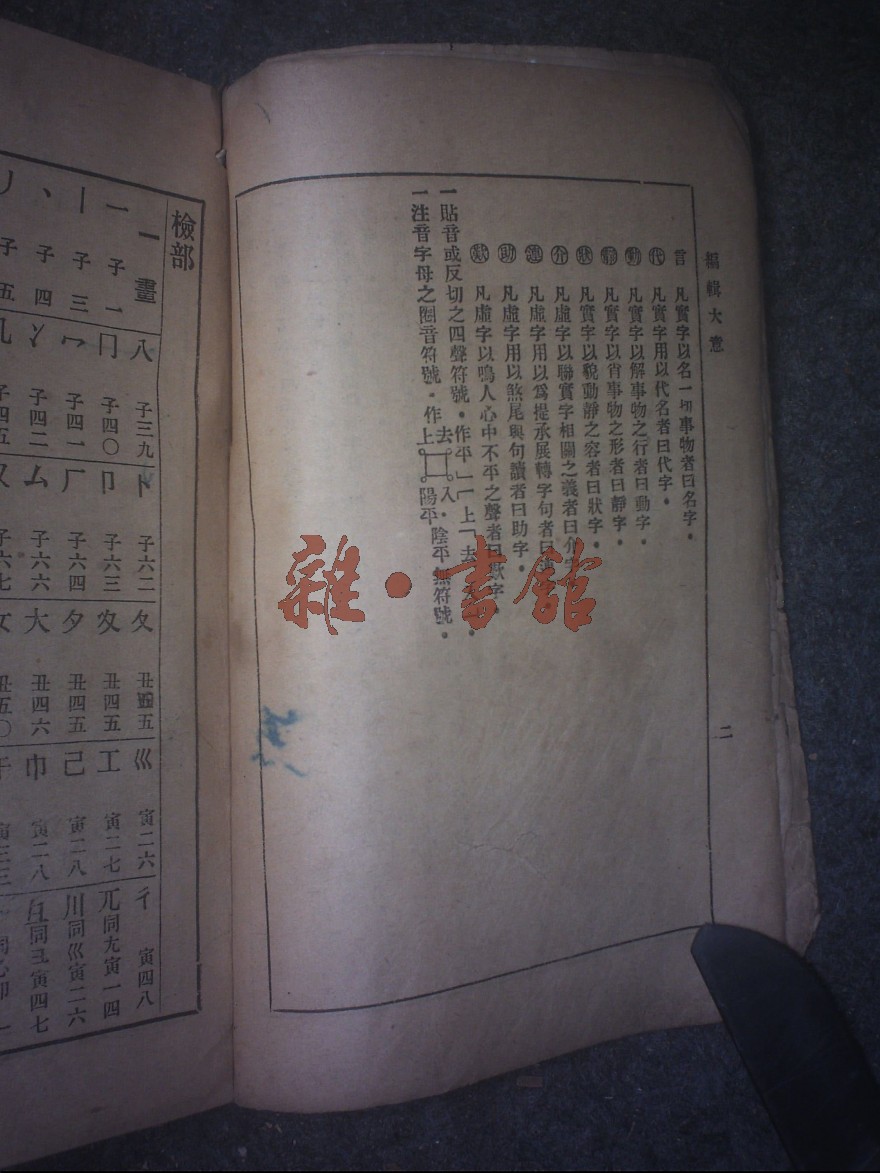 編輯大意
言 凡實字以名一切事物者曰名字。
代 凡實字用以代名者曰代字。
動 凡實字以解事物之行者曰動字。
靜 凡實字以肖事物之形者曰靜字。
狀 凡實字以貌動靜之容者曰狀字。
介 凡虛字以聯實字相關之義者曰介
連 凡虛字用以為提承展轉字句者曰連
助 凡虛字用以煞尾與句讀者曰助字。
歎 凡虛字以鳴人心中不平之聲者曰歎字。
一貼音或反切之四聲符號。作平
上 去
一注音字母之圈音符號。作上 去 入。陽平 陰平無符號。
二
檢部
一畫
一 子一
丨 子三
丶 子四
丿 子五
八 子三九
冂 子四〇
冖 子四一
冫 子四二
几 子四五
卜 子六二
卩 子六三
厂 子六四
厶 子六六
又 子六七
夂 丑四五
夊 丑四五
夕 丑四五
大 丑四六
女 丑五〇
巛 寅二六
工 寅二七
己 寅二八
巾 寅二八
干 寅三三
彳 寅四八
兀同尢寅一四
川同巛寅二六
彑同彐寅四七